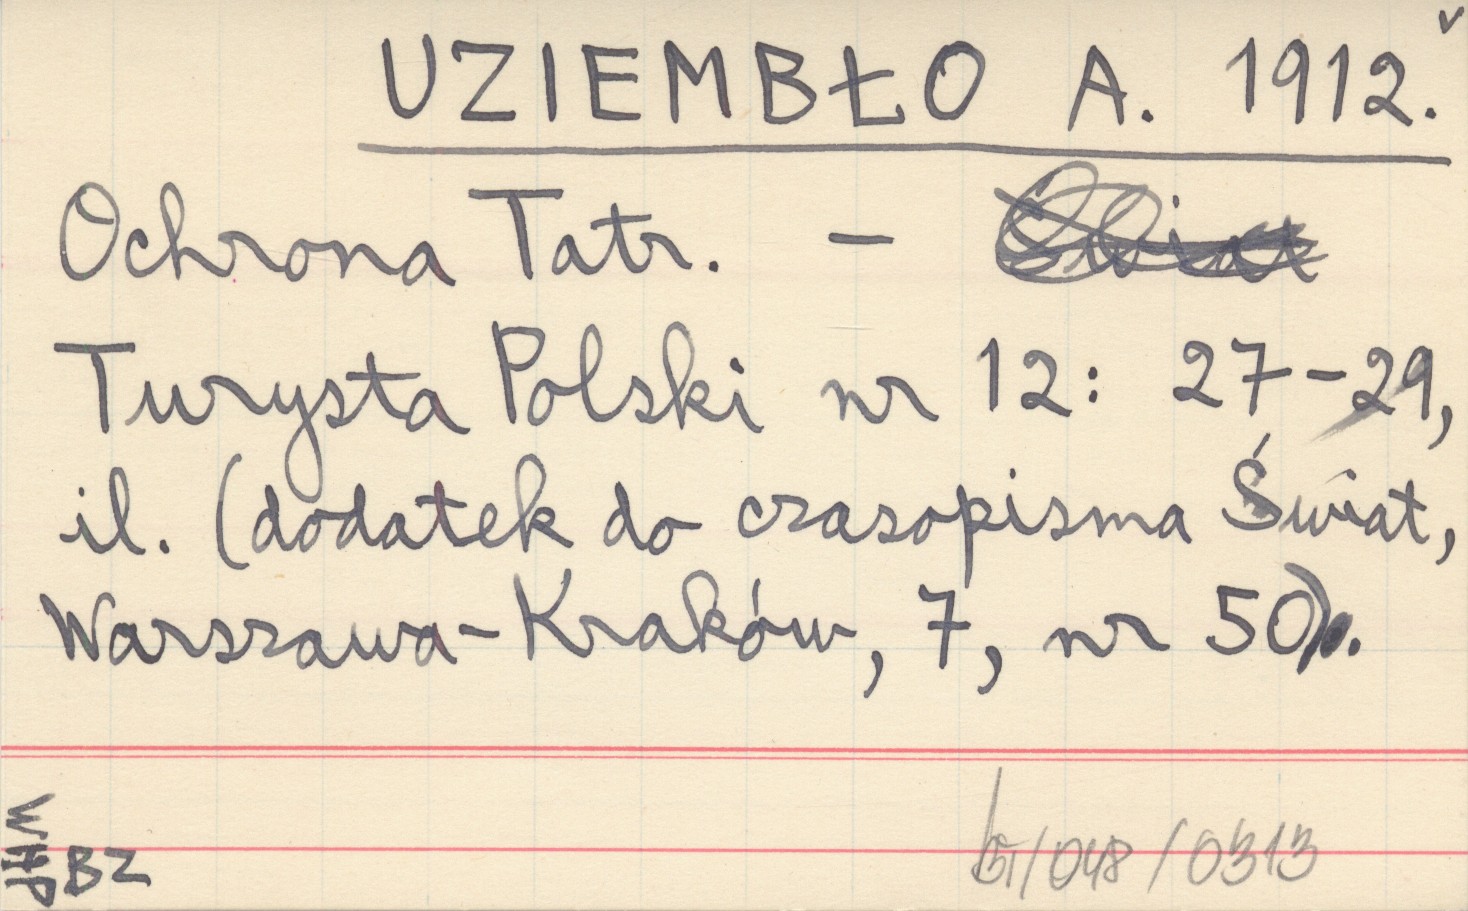 v
UZIEMBŁO A. 1912.
Ochrona Tatr. -
Turysta Polski nr 12: 27-29,
il. (dodatek do czasopisma Świat,
Warszawa-Kraków, 7, nr 50).
BZ
/048/0313